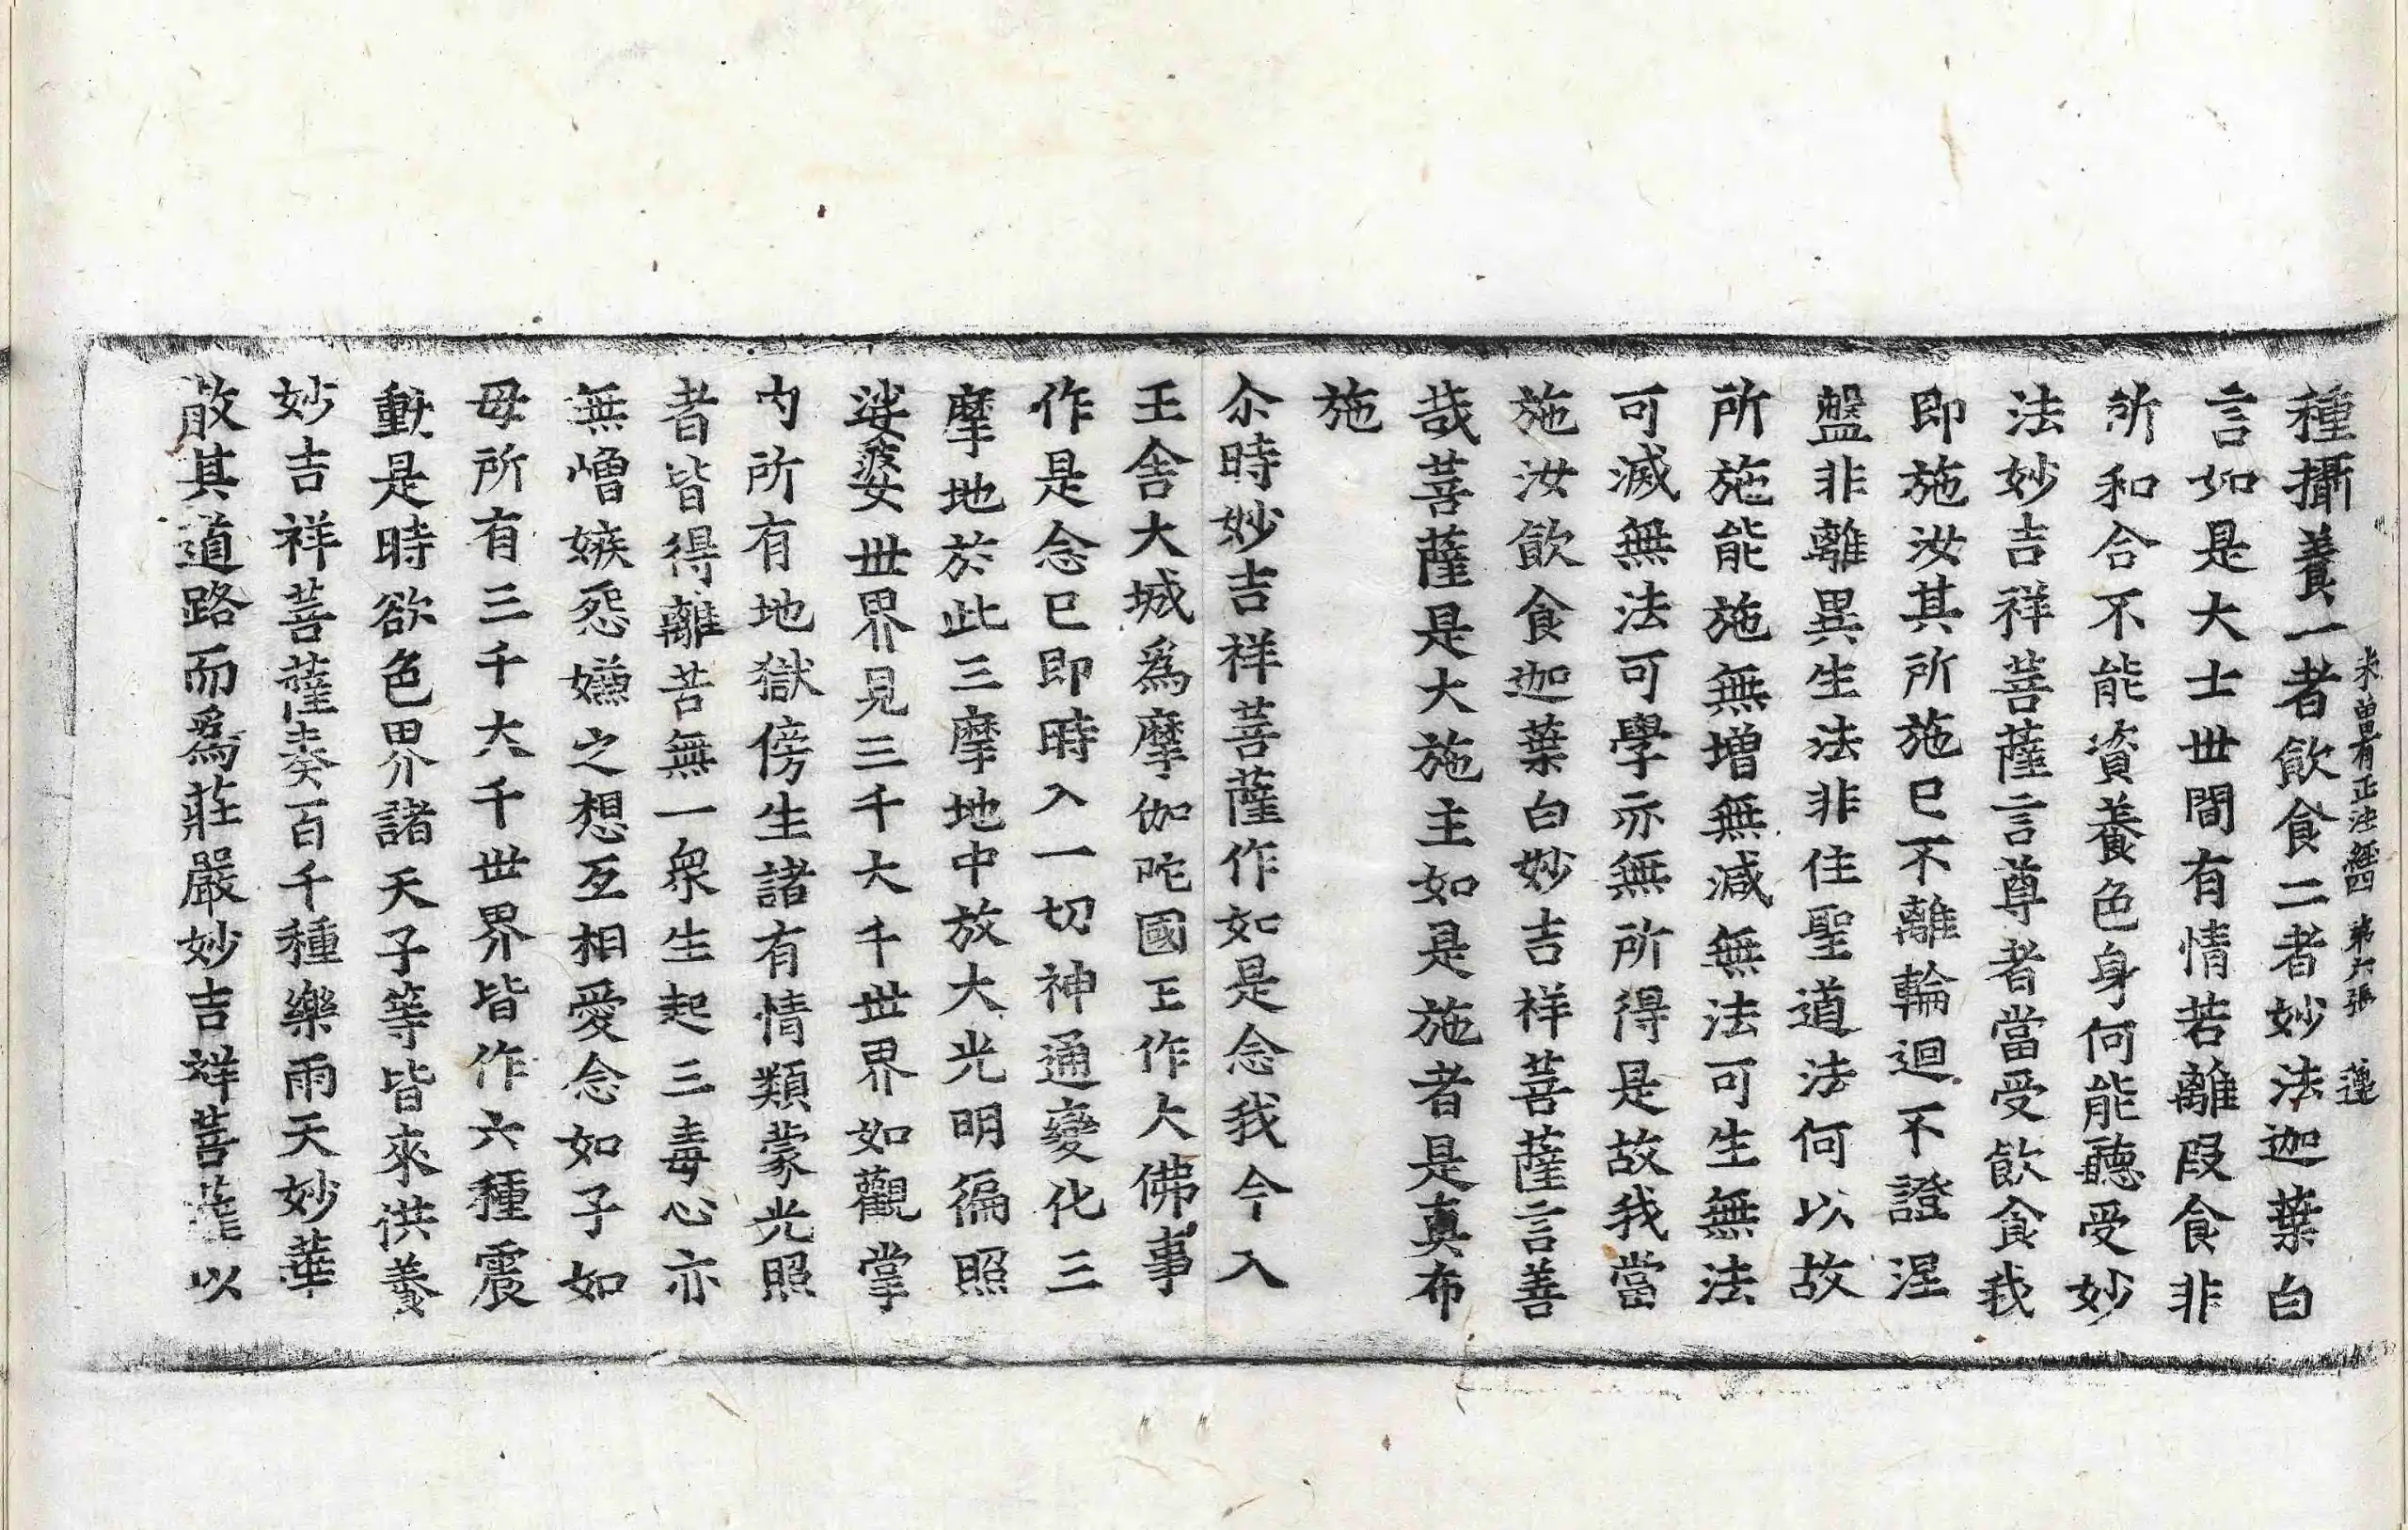 未曾有正法經四 第六張 蓮
種攝養一者飲食二者妙法迦葉白
言如是大士世間有情若離段食非
所和合不能資養色身何能聽受妙
法妙吉祥菩薩言尊者當受飲食我
即施汝其所施已不離輪迴不證涅
盤非離異生法非住聖道法何以故
所施能施無增無減無法可生無法
可滅無法可學亦無所得是故我當
施汝飲食迦葉白妙吉祥菩薩言善
哉菩薩是大施主如是施者是真布
施
尒時妙吉祥菩薩作如是念我今入
王舍大城爲摩伽陀國王作大佛事
作是念已即時入一切神通變化三
摩地於此三摩地中放大光明徧照
娑婆世界見三千大千世界如觀掌
内所有地獄傍生諸有情類蒙光照
者皆得離苦無一衆生起三毒心亦
無憎嫉怨嫌之想互相愛念如子如
母所有三千大千世界皆作六種震
動是時欲色界諸天子等皆來供養
妙吉祥菩薩奏百千種樂雨天妙華
散其道路而爲莊嚴妙吉祥菩薩以